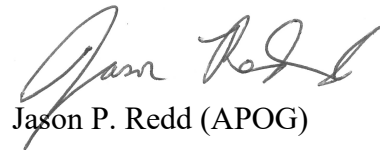 Jason Redd
Jason P. Redd (APOG)